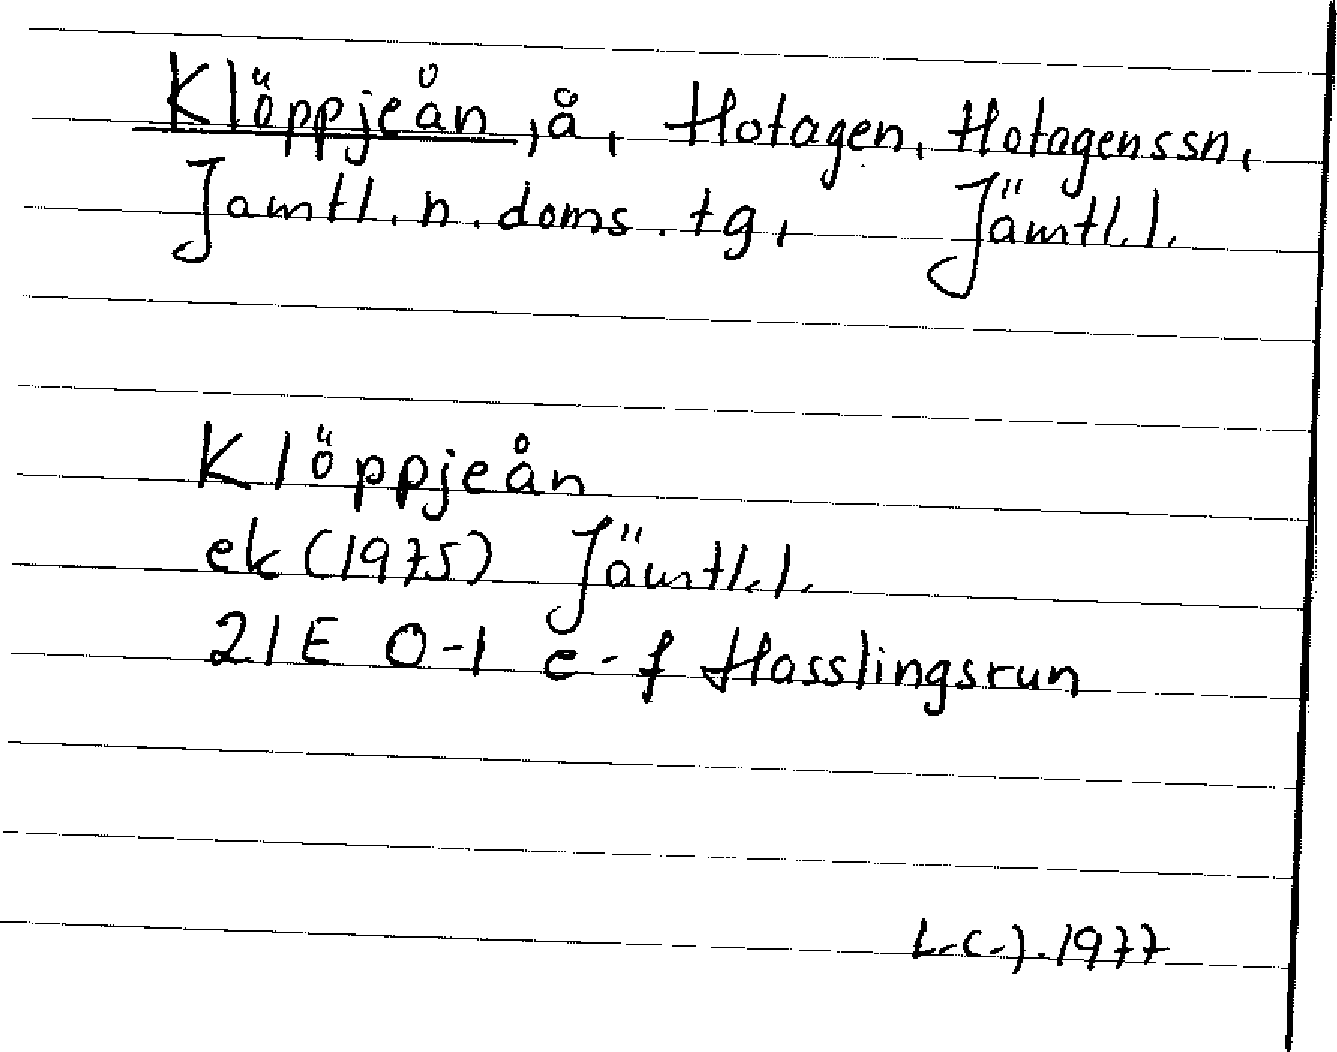 Klöppjeån, å, Hotagen, Hotagenssn,
Jämtl. n. doms. tg, Jämtl. l.
Klöppjeån
ek (1975) Jämtl. l.
21E 0-1 e-f Hasslingsrun
L-C-J. 1977